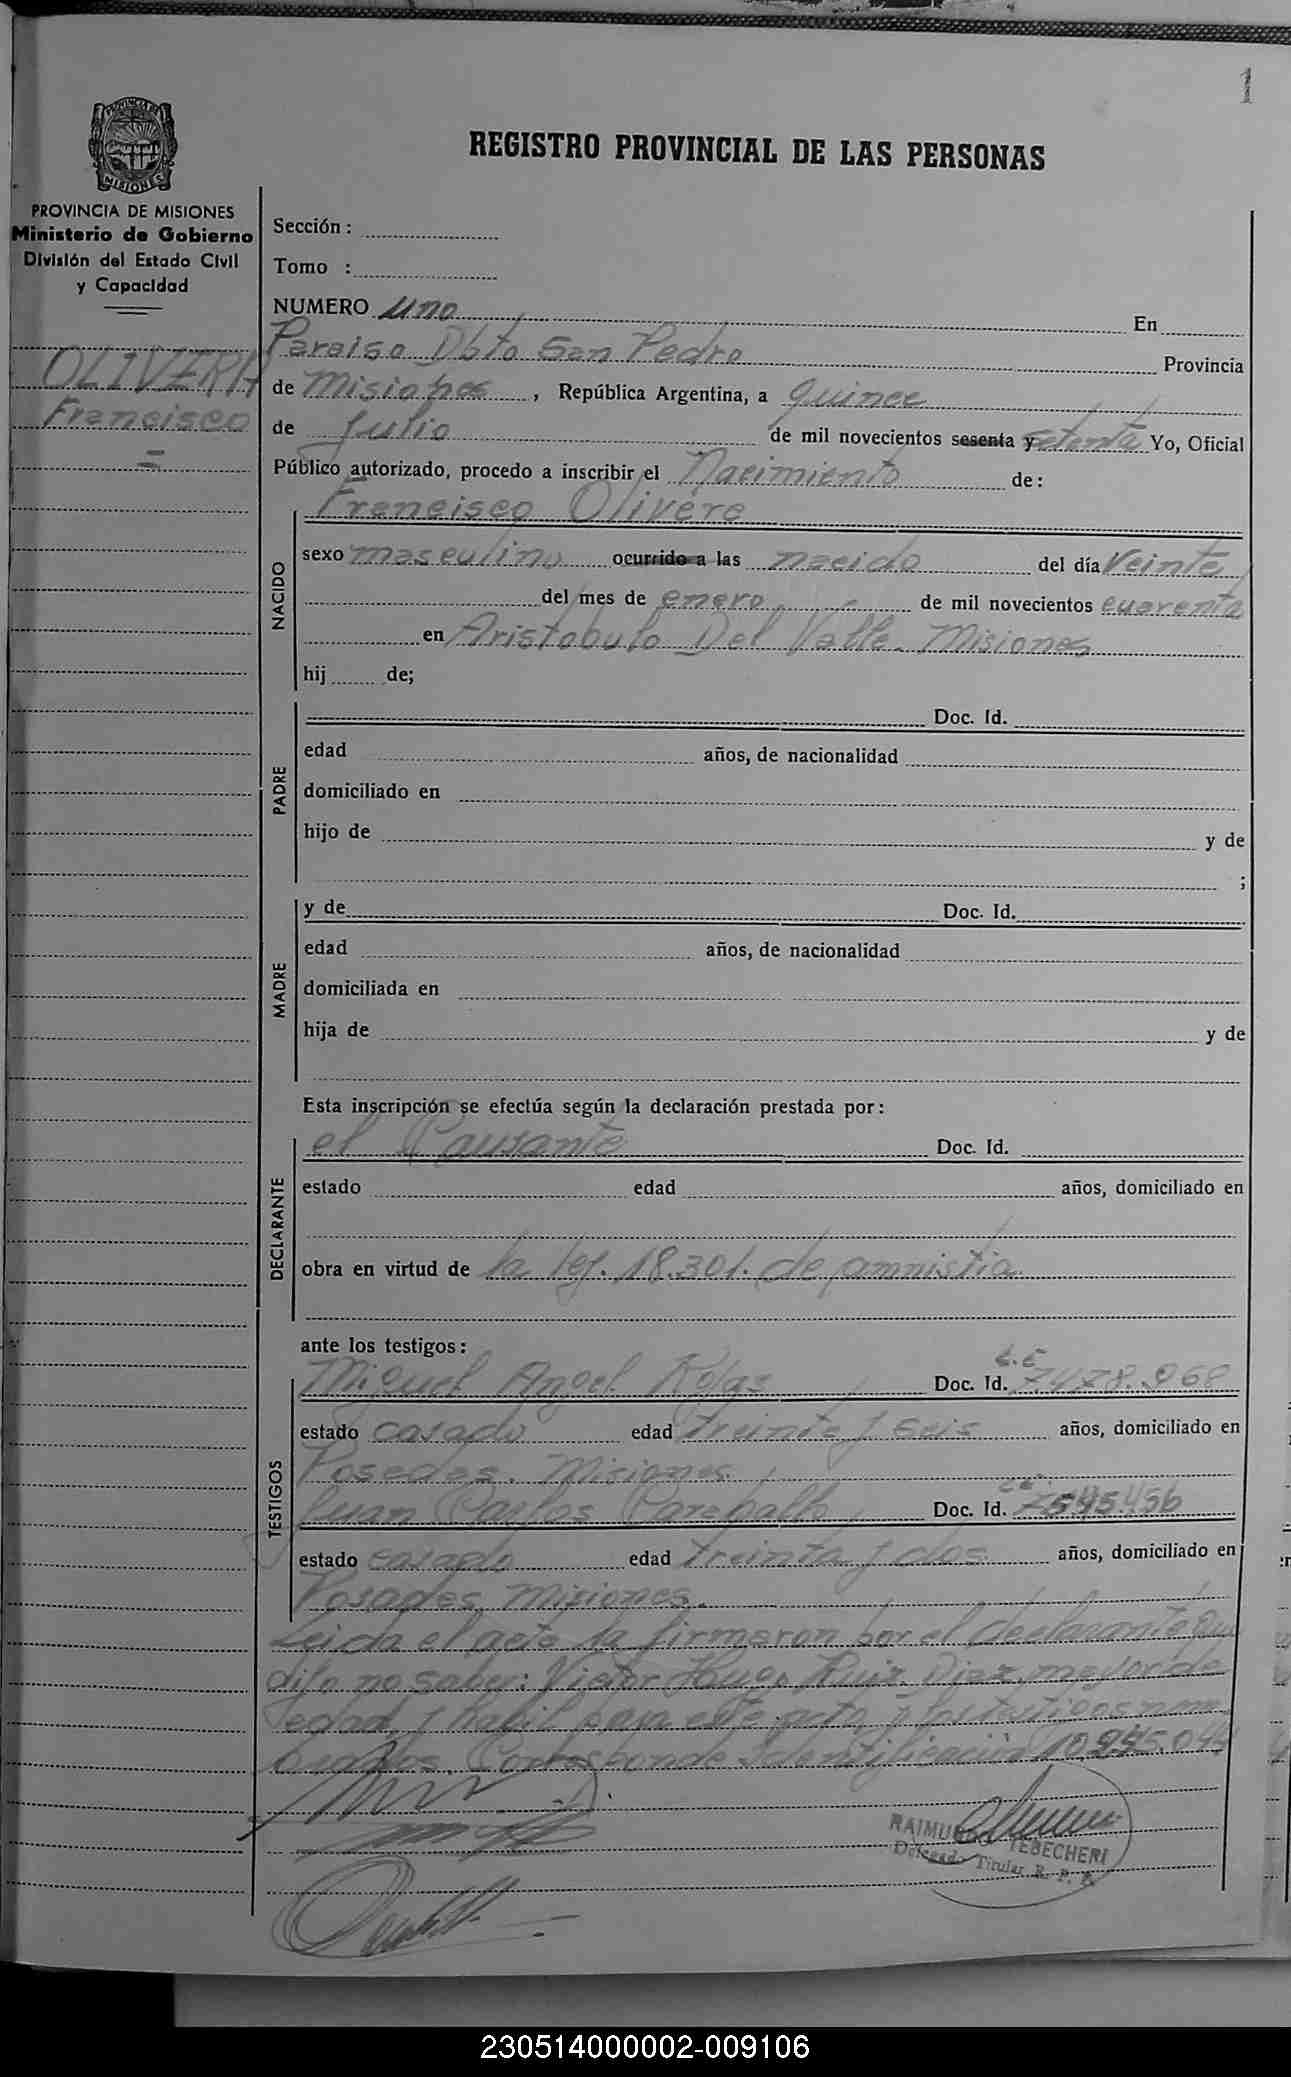 1
REGISTRO PROVINCIAL DE LAS PERSONAS
PROVINCIA DE
MISIONES
PROVINCIA DE MISIONES
Ministerio de Gobierno
División del Estado Civil
y Capacidad
OLIVERA
Francisco
Sección :
Tomo :
NUMERO uno En
Paraiso Dbto San Pedro Provincia
de Misiones , República Argentina, a quince
de Julio de mil novecientos sesenta y setenta Yo, Oficial
Público autorizado, procedo a inscribir el Nacimiento de :
Francisco Olivera
NACIDO
sexo masculino ocurrido a las nacido del día Veinte
del mes de enero de mil novecientos cuarenta
en Aristobulo Del Valle. Misiones
hij de;
PADRE
Doc. Id.
edad años, de nacionalidad
domiciliado en
hijo de y de
;
MADRE
y de Doc. Id.
edad años, de nacionalidad
domiciliada en
hija de y de
Esta inscripción se efectúa según la declaración prestada por :
DECLARANTE
el Causante Doc. Id.
estado edad años, domiciliado en
obra en virtud de la ley. 18.301. de amnistia
ante los testigos :
TESTIGOS
Miguel Angel Rojas Doc. Id. 7478.968
estado casado edad treinta y seis años, domiciliado en
Posadas. Misiones.
Juan Carlos Doc. Id. 7545.456
estado casado edad treinta y dos años, domiciliado en
Posadas Misiones.
Leida el acta la firmaron por el declarante que
dijo no saber: Victor Hugo Ruiz Diaz, mayor de
edad y habil para este acto y los testigos nom
brados. Corresponde Identificación
RAIMUNDO TEBECHERI
Delegado Titular R. P. P.
230514000002-009106